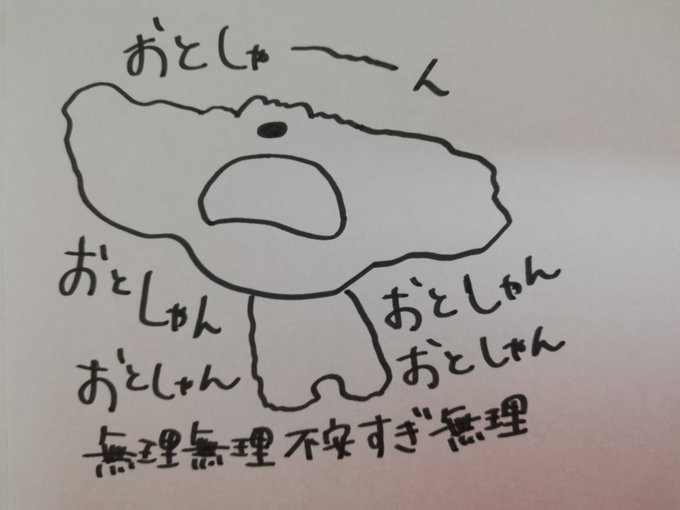 おとしゃーーん
おとしゃん
おとしゃん
おとしゃん
おとしゃん
無理無理不安すぎ無理